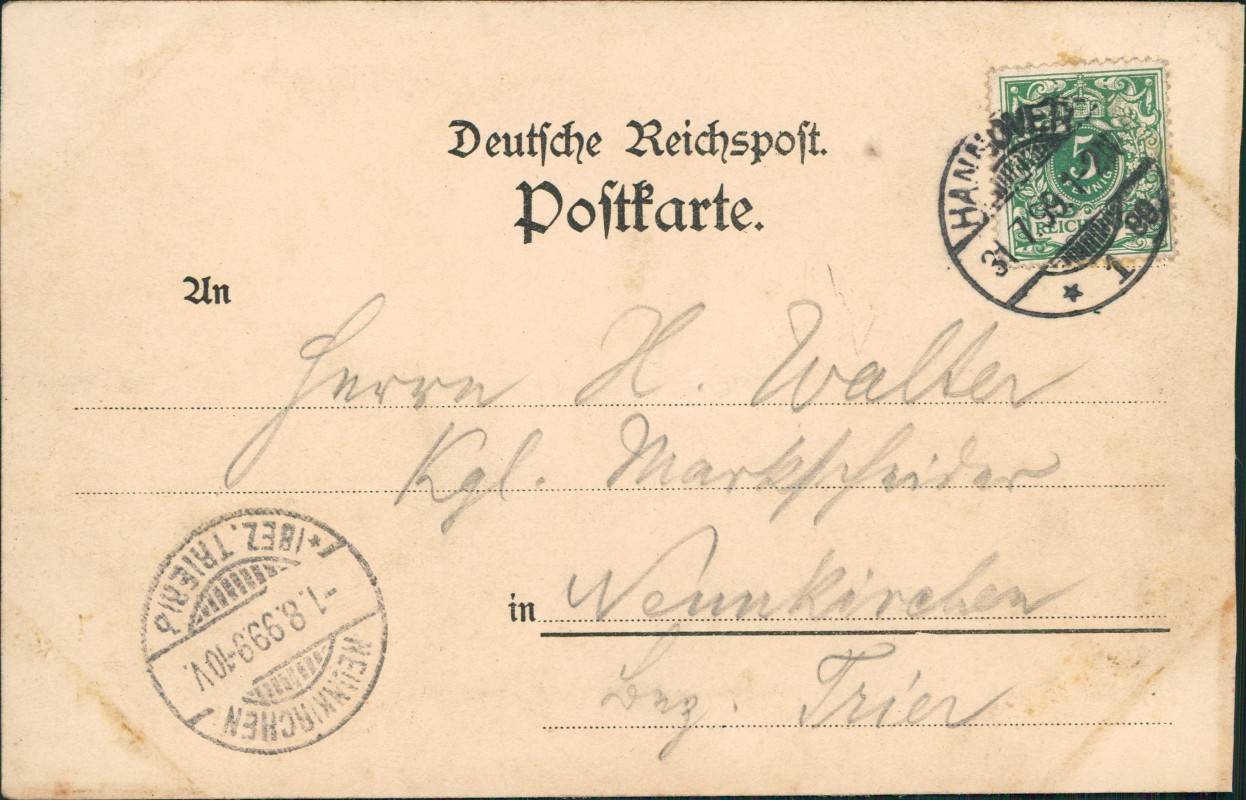 Deutsche Reichspost.
Postkarte.
HANNOVER
31.7.99.
1
*
5
PFENNIG
REICHSPOST
An
Herrn H. Walter
Kgl. Markscheider
in Neunkirchen
Bez. Trier
NEUNKIRCHEN
-1.8.99.9-10V.
* (BEZ. TRIER) b